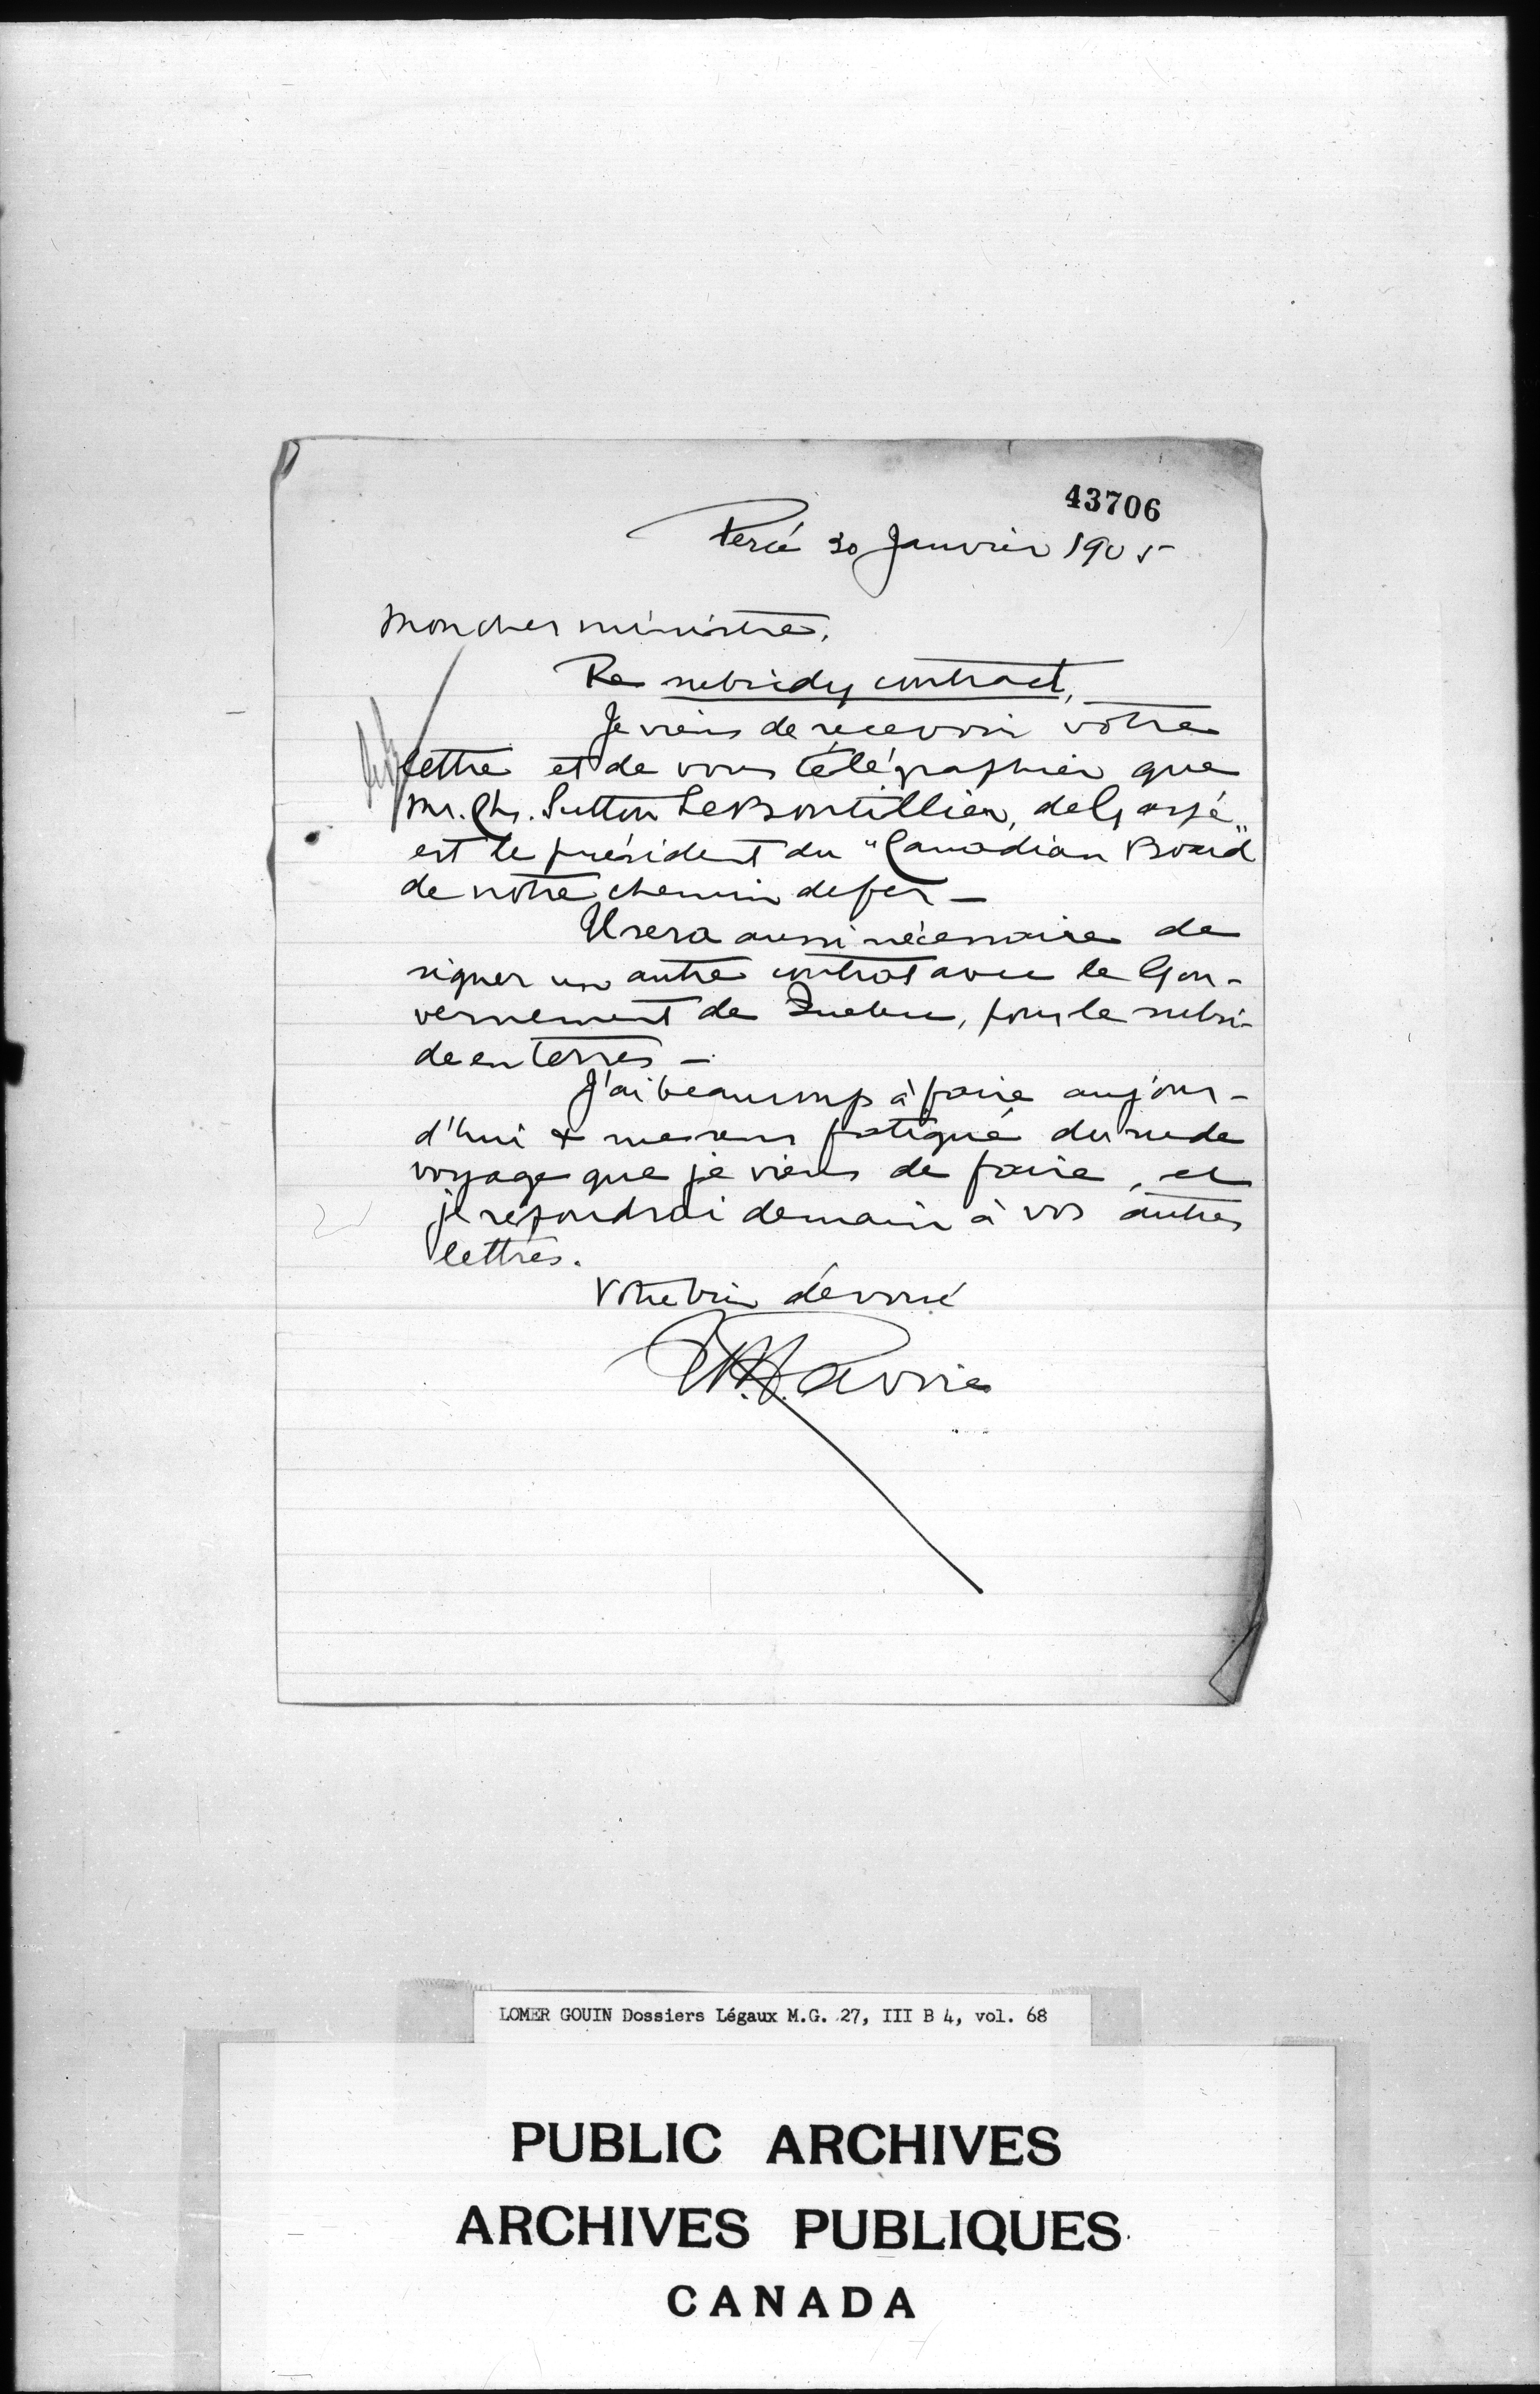 43706
Percé 30 Janvier 1905
Mon cher ministre,
Re subsidy contract,
Je viens de recevoir votre
lettre et de vous télégraphier que
Mr. Chs. Sutton LeBoutillier, de Gaspé,
est le président du "Canadian Board"
de notre chemin de fer —
Il sera aussi nécessaire de
signer un autre contrat avec le Gou-
vernement de Quebec, pour le subsi-
de en terres —
J'ai beaucoup à faire aujour-
d'hui & me sens fatigué du rude
voyage que je viens de faire, et
je répondrai demain à vos autres
lettres.
Votre bien dévoué
Lavoie
LOMER GOUIN Dossiers Légaux M.G. 27, III B 4, vol. 68
PUBLIC ARCHIVES
ARCHIVES PUBLIQUES
CANADA